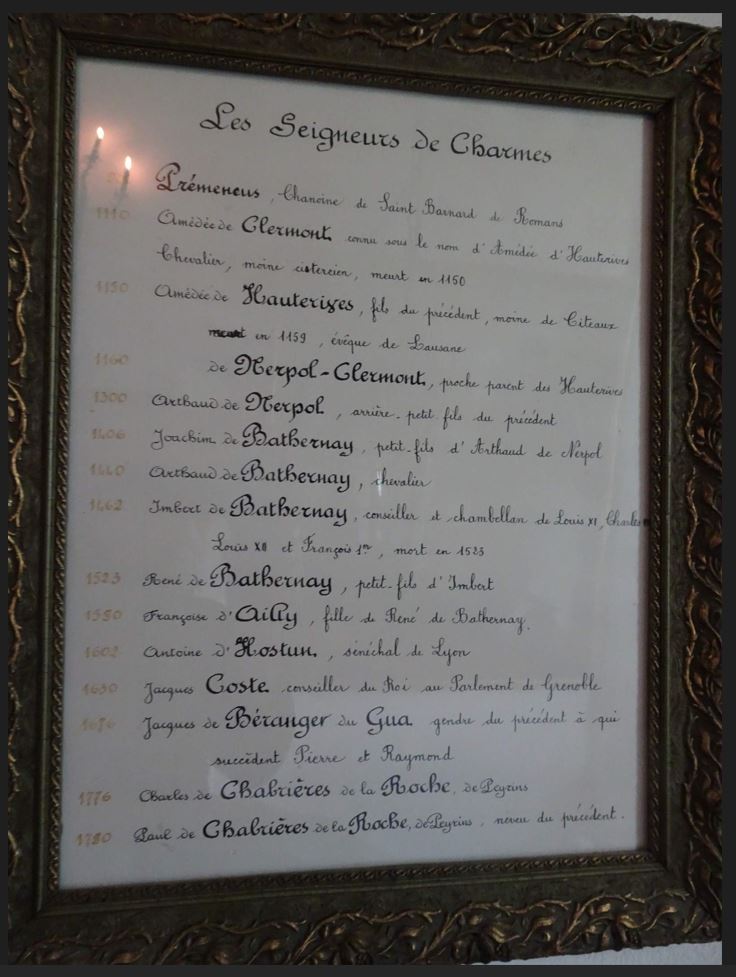 Les Seigneurs de Charmes
Prémeneus, Chanoine de Saint Barnard de Romans
1110 Amédée de Clermont connu sous le nom d'Amédée d'Hauterives
Chevalier, moine cistercien, meurt en 1150
1150 Amédée de Hauterives, fils du précédent, moine de Citeaux
meurt en 1159, évêque de Lausane
1160 de Nerpol-Clermont, proche parent des Hauterives
1300 Arthaud de Nerpol, arrière-petit fils du précédent
1406 Joachim de Bathernay, petit-fils d'Arthaud de Nerpol
1440 Arthaud de Bathernay, chevalier
1462 Imbert de Bathernay, conseiller et chambellan de Louis XI, Charles
Louis XII et François 1er, mort en 1523
1523 René de Bathernay, petit-fils d'Imbert
1550 Françoise d'Ailly, fille de René de Bathernay.
1602 Antoine d'Hostun, sénéchal de Lyon
1630 Jacques Coste conseiller du Roi au Parlement de Grenoble
1676 Jacques de Béranger du Gua gendre du précédent à qui
succèdent Pierre et Raymond
1776 Charles de Chabrières de la Roche, de Peyrins
1780 Paul de Chabrières de la Roche, de Peyrins, neveu du précédent.